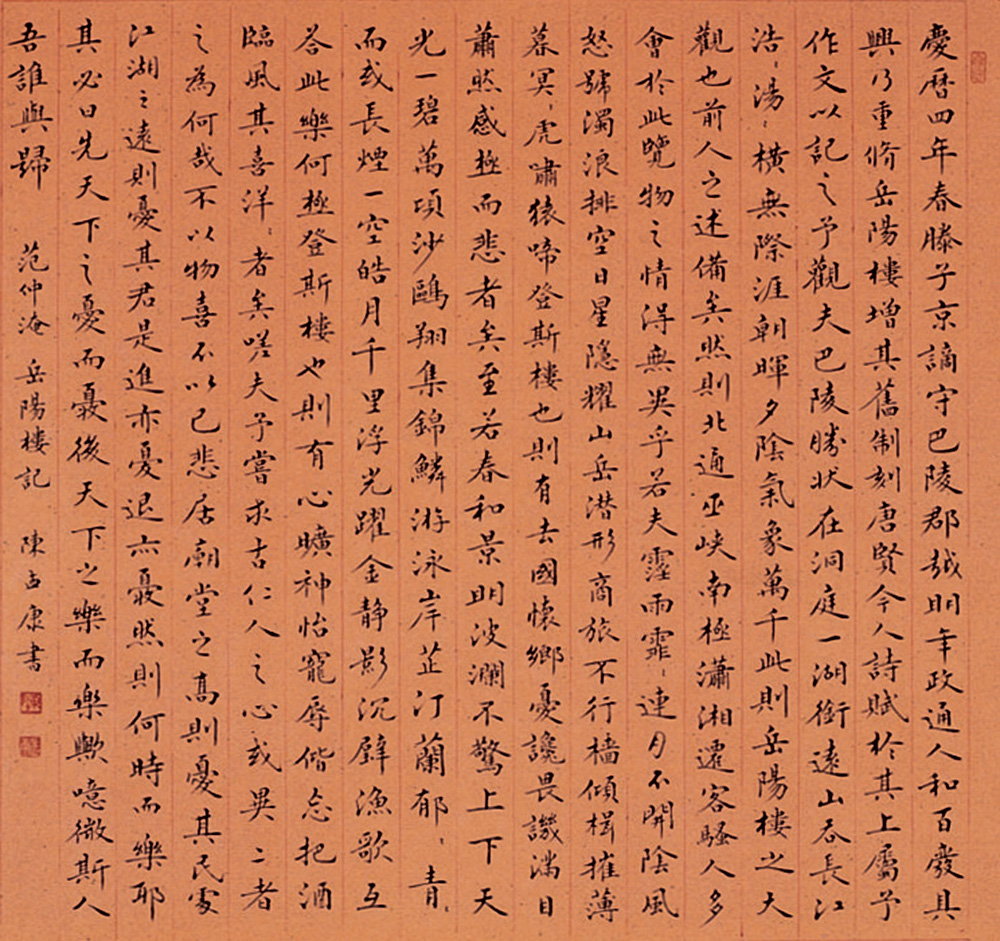 慶曆四年春滕子京謫守巴陵郡越明年政通人和百廢具
興乃重脩岳陽樓增其舊制刻唐賢今人詩賦於其上屬予
作文以記之予觀夫巴陵勝狀在洞庭一湖銜遠山吞長江
浩〻湯〻橫無際涯朝暉夕陰氣象萬千此則岳陽樓之大
觀也前人之述備矣然則北通巫峽南極瀟湘遷客騷人多
會於此覽物之情得無異乎若夫霪雨霏〻連月不開陰風
怒號濁浪排空日星隱耀山岳潛形商旅不行檣傾楫摧薄
暮冥〻虎嘯猿啼登斯樓也則有去國懷鄉憂讒畏譏滿目
蕭然感極而悲者矣至若春和景明波瀾不驚上下天
光一碧萬頃沙鷗翔集錦鱗游泳岸芷汀蘭郁〻青〻
而或長煙一空皓月千里浮光躍金静影沉璧漁歌互
答此樂何極登斯樓也則有心曠神怡寵辱偕忘把酒
臨風其喜洋〻者矣嗟夫予嘗求古仁人之心或異二者
之為何哉不以物喜不以己悲居廟堂之高則憂其民處
江湖之遠則憂其君是進亦憂退亦憂然則何時而樂耶
其必曰先天下之憂而憂後天下之樂而樂歟噫微斯人
吾誰與歸 范仲淹 岳陽樓記 陳占康書